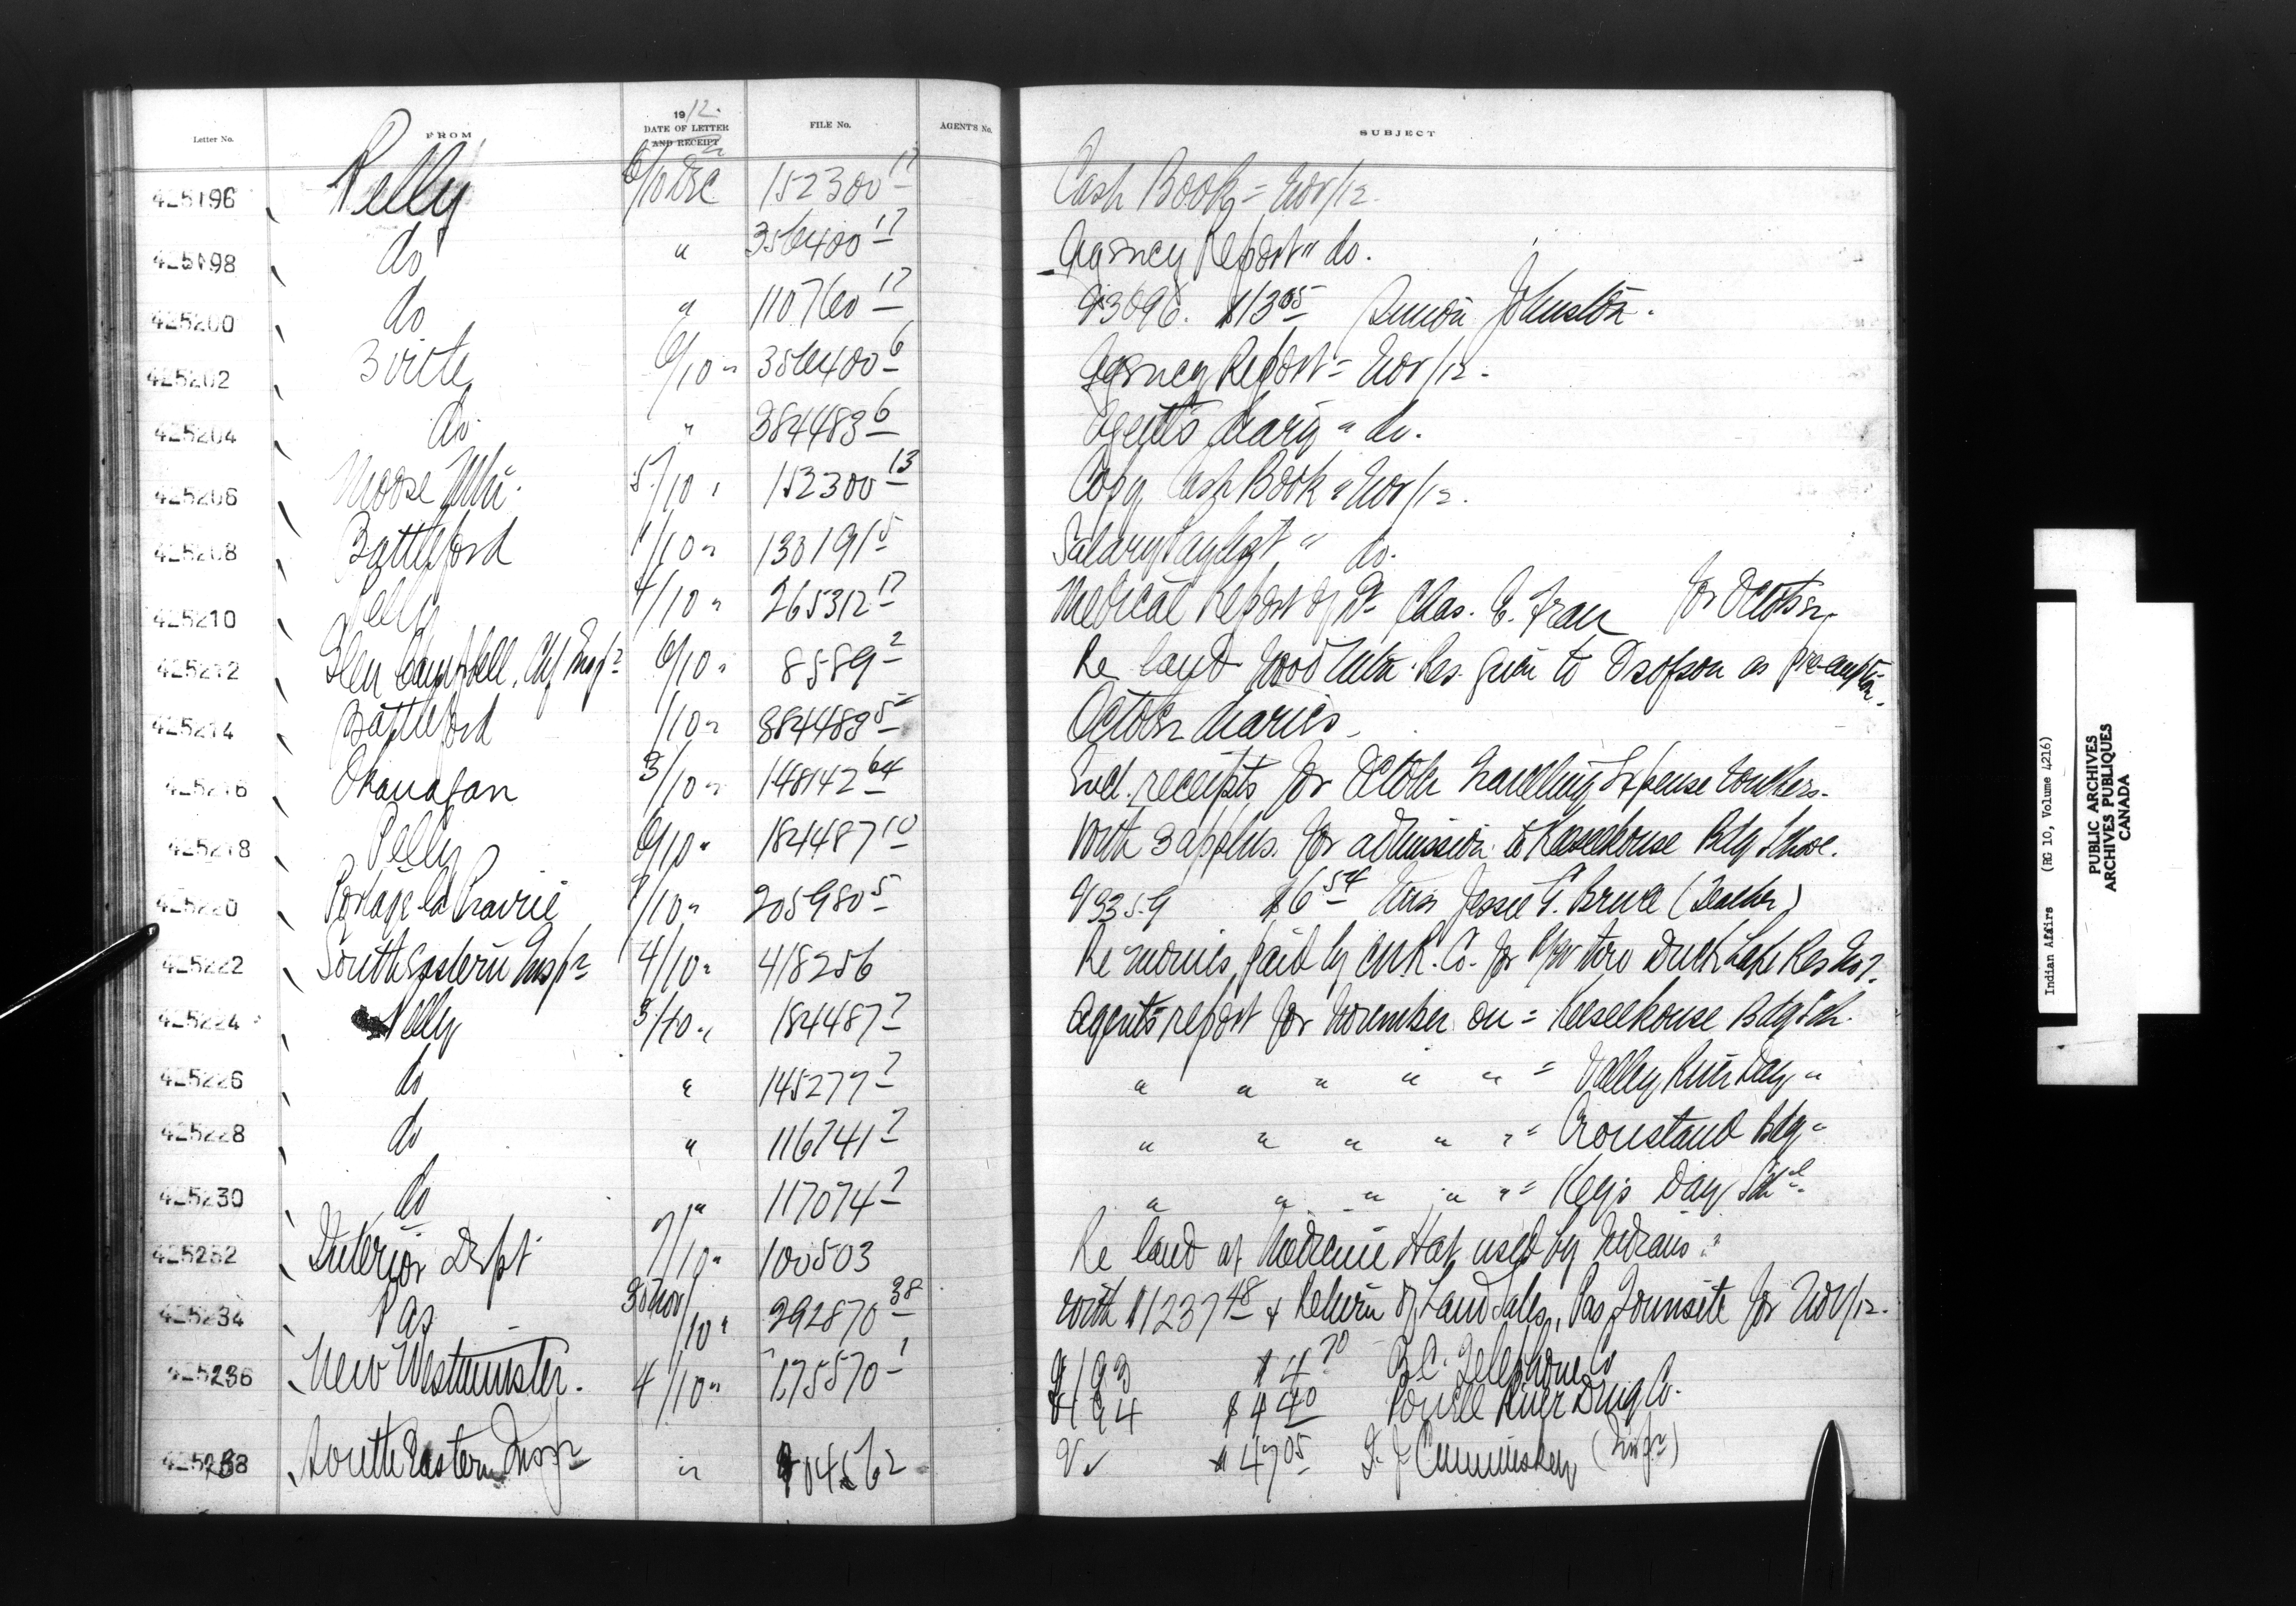 Letter No. FROM 1912 DATE OF LETTER AND RECEIPT FILE No. AGENT'S No. SUBJECT
425196 Pelly 6/10 Dec 152300 17 Cash Book = Nov/12.
425198 do " 356400 17 Agency Report " do.
425200 do " 110760 17 $13 05 Johnston.
425202 Birtle 6/10 " 356400 6 Agency Report = Nov/12.
425204 do. " 384483 6 Agent's diary " do.
425206 Moose Mtn. 5/10 " 152300 13 Copy Cash Book " Nov/12.
425208 Battleford /10 " 130191 5 Salary Paylist " do.
425210 Pelly 4/10 " 265312 17 Medical Report of Dr. Chas. E. for October
425212 Glen Campbell, Chf Inspr 6/10 " 8589 2 Re land Res. given to as pre-emption.
425214 Battleford /10 " 384489 5 October diaries.
425216 Okanagan 3/10 " 148142 64 Encl. receipts for October travelling Expense vouchers.
425218 Pelly 6/10 " 184487 10 With 3 applns. for admission to Keeseekouse Bdg School.
425220 Portage la Prairie /10 " 205980 5 V3359 $6 54 Miss Jessie G. Bruce (Teacher)
425222 South Eastern Inspr 4/10 " 418256 Re monies paid by CNR. Co. for R/W thro Duck Lake Res No 7.
425224 Pelly 3/10 " 184487 7 Agents report for November on = Keeseekouse Bdg Sch.
425226 do " 145277 7 " " " " " = Valley River Day "
425228 do " 116741 7 " " " " " = Crowstand Bdg "
425230 do " 117074 7 " " " " " = Key's Day Schl.
425232 Interior Dept 7/10 " 100503 Re land at Medicine Hat used by Indians.
425234 Pas 30 Nov/10 " 292870 38 With $1237 48 & Return of Land Sales, Pas Townsite for Nov/12.
425236 New Westminster. 4/10 " 175570 1 V193 $4 70 B.C. Telephone Co
V194 $4 40 Powell River Drug Co.
425238 South Eastern Inspr " 104562 V $47 05 Cummiskey (Inspr)
Indian Affairs (RG 10, Volume 4216)
PUBLIC ARCHIVES
ARCHIVES PUBLIQUES
CANADA